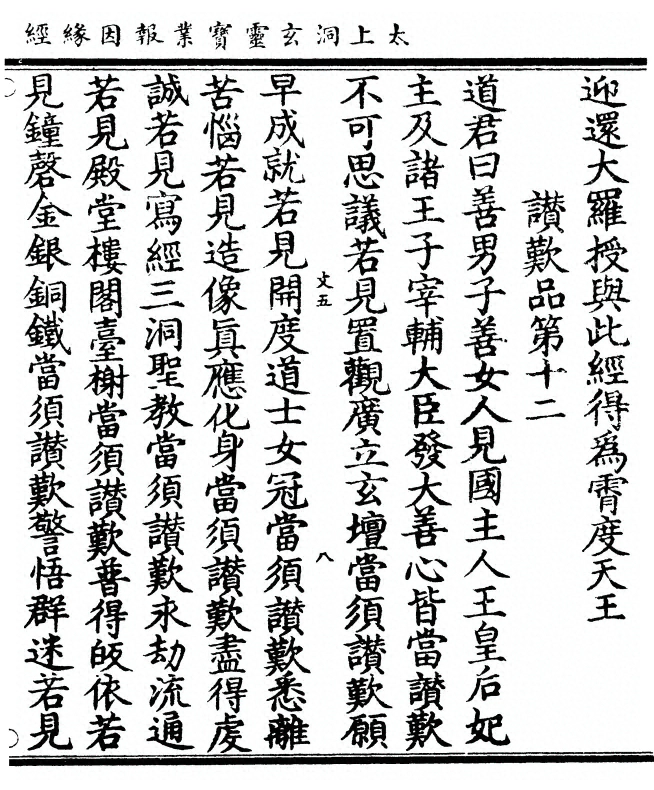 太上洞玄靈寶業報因緣經
迎還大羅授與此經得爲霄度天王
讃歎品第十二
道君曰善男子善女人見國主人王皇后妃
主及諸王子宰輔大臣發大善心皆當讃歎
不可思議若見置觀廣立玄壇當須讃歎願
丈五
八
早成就若見開度道士女冠當須讃歎悉離
苦惱若見造像眞應化身當須讃歎盡得虔
誠若見寫經三洞聖教當須讃歎永劫流通
若見殿堂樓閣臺榭當須讃歎普得皈依若
見鐘磬金銀銅鐵當須讃歎警悟群迷若見